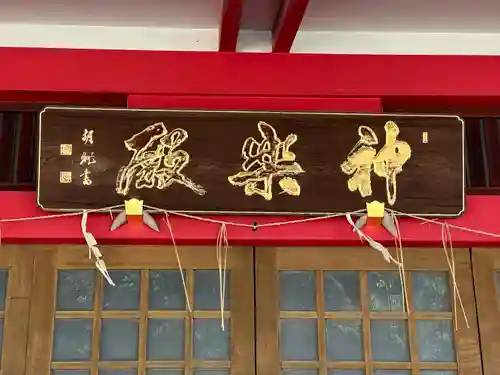 神樂殿